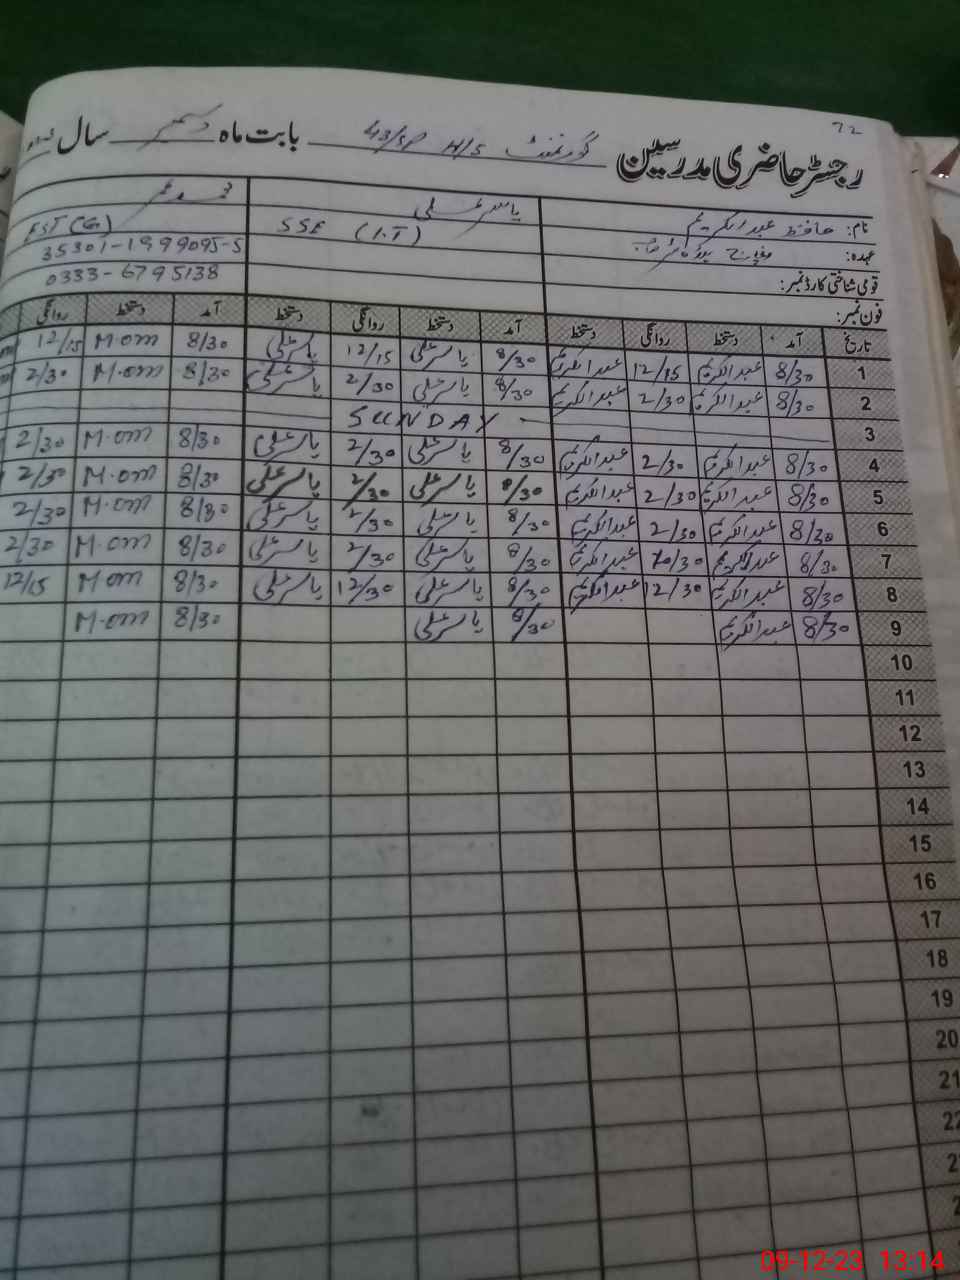 22
رجسٹر حاضری مدرسین گورنمنٹ H/S 43/SP بابت ماہ دسمبر سال
نام: حافظ عبدالکریم یاسر علی محمد عمر
عہدہ: SSE (I.T) EST (G)
قومی شناختی کارڈ نمبر: 35301-1999095-5
فون نمبر: 0333-6795138
تاریخ آمد دستخط روانگی دستخط آمد دستخط روانگی دستخط آمد دستخط روانگی
1 8/30 عبدالکریم 12/15 عبدالکریم 8/30 یاسر علی 12/15 یاسر علی 8/30 M.om 12/15
2 8/30 عبدالکریم 2/30 عبدالکریم 8/30 یاسر علی 2/30 یاسر علی 8/30 M.om 2/30
3 SUNDAY
4 8/30 عبدالکریم 2/30 عبدالکریم 8/30 یاسر علی 2/30 یاسر علی 8/30 M.om 2/30
5 8/30 عبدالکریم 2/30 عبدالکریم 8/30 یاسر علی 2/30 یاسر علی 8/30 M.om 2/30
6 8/30 عبدالکریم 2/30 عبدالکریم 8/30 یاسر علی 2/30 یاسر علی 8/30 M.om 2/30
7 8/30 عبدالکریم 2/30 عبدالکریم 8/30 یاسر علی 2/30 یاسر علی 8/30 M.om 2/30
8 8/30 عبدالکریم 12/30 عبدالکریم 8/30 یاسر علی 12/30 یاسر علی 8/30 M.om 12/15
9 8/30 عبدالکریم 8/30 یاسر علی 8/30 M.om
10
11
12
13
14
15
16
17
18
19
20
21
22
09-12-23 13:14